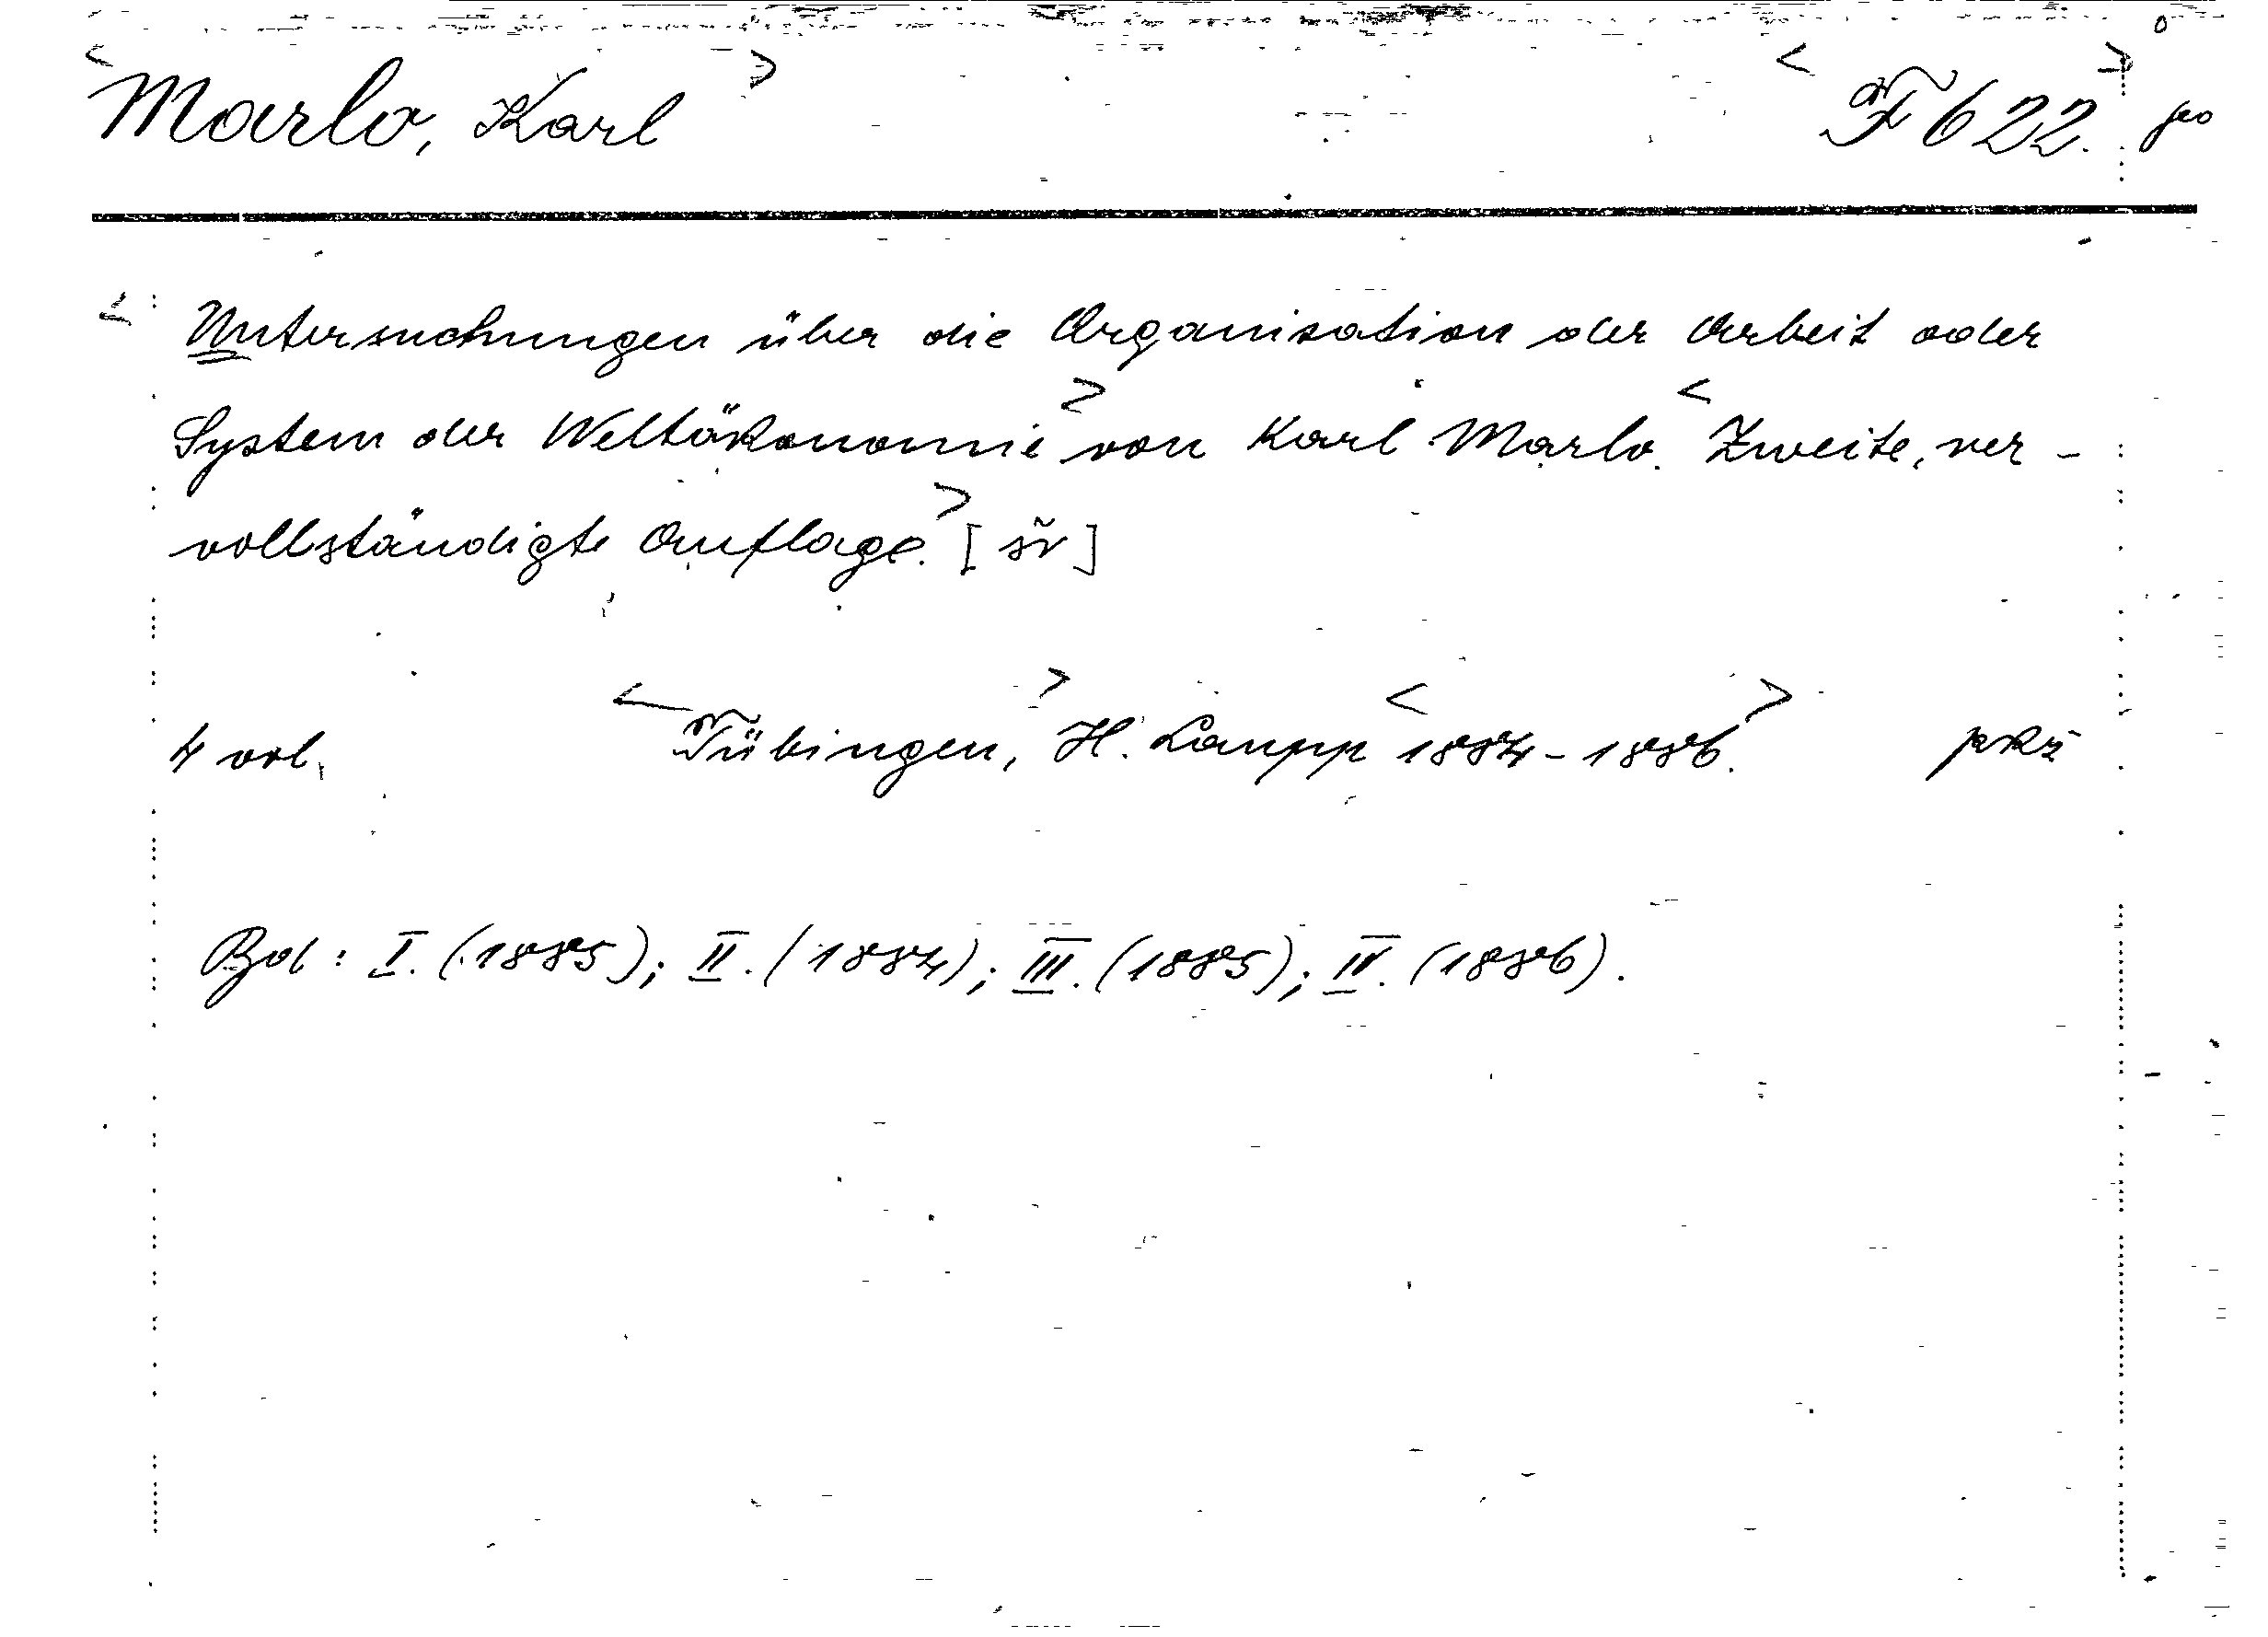 <Marlo, Karl> <F 622.>
<Untersuchungen über die Organisation der Arbeit oder
System der Weltökonomie> von Karl Marlo. <Zweite, ver-
vollständigte Auflage.> [šř]
4 vol. <Tübingen,> H. Laupp <1884-1886.>
Bd: I. (1885); II. (1884); III. (1885); IV. (1886).